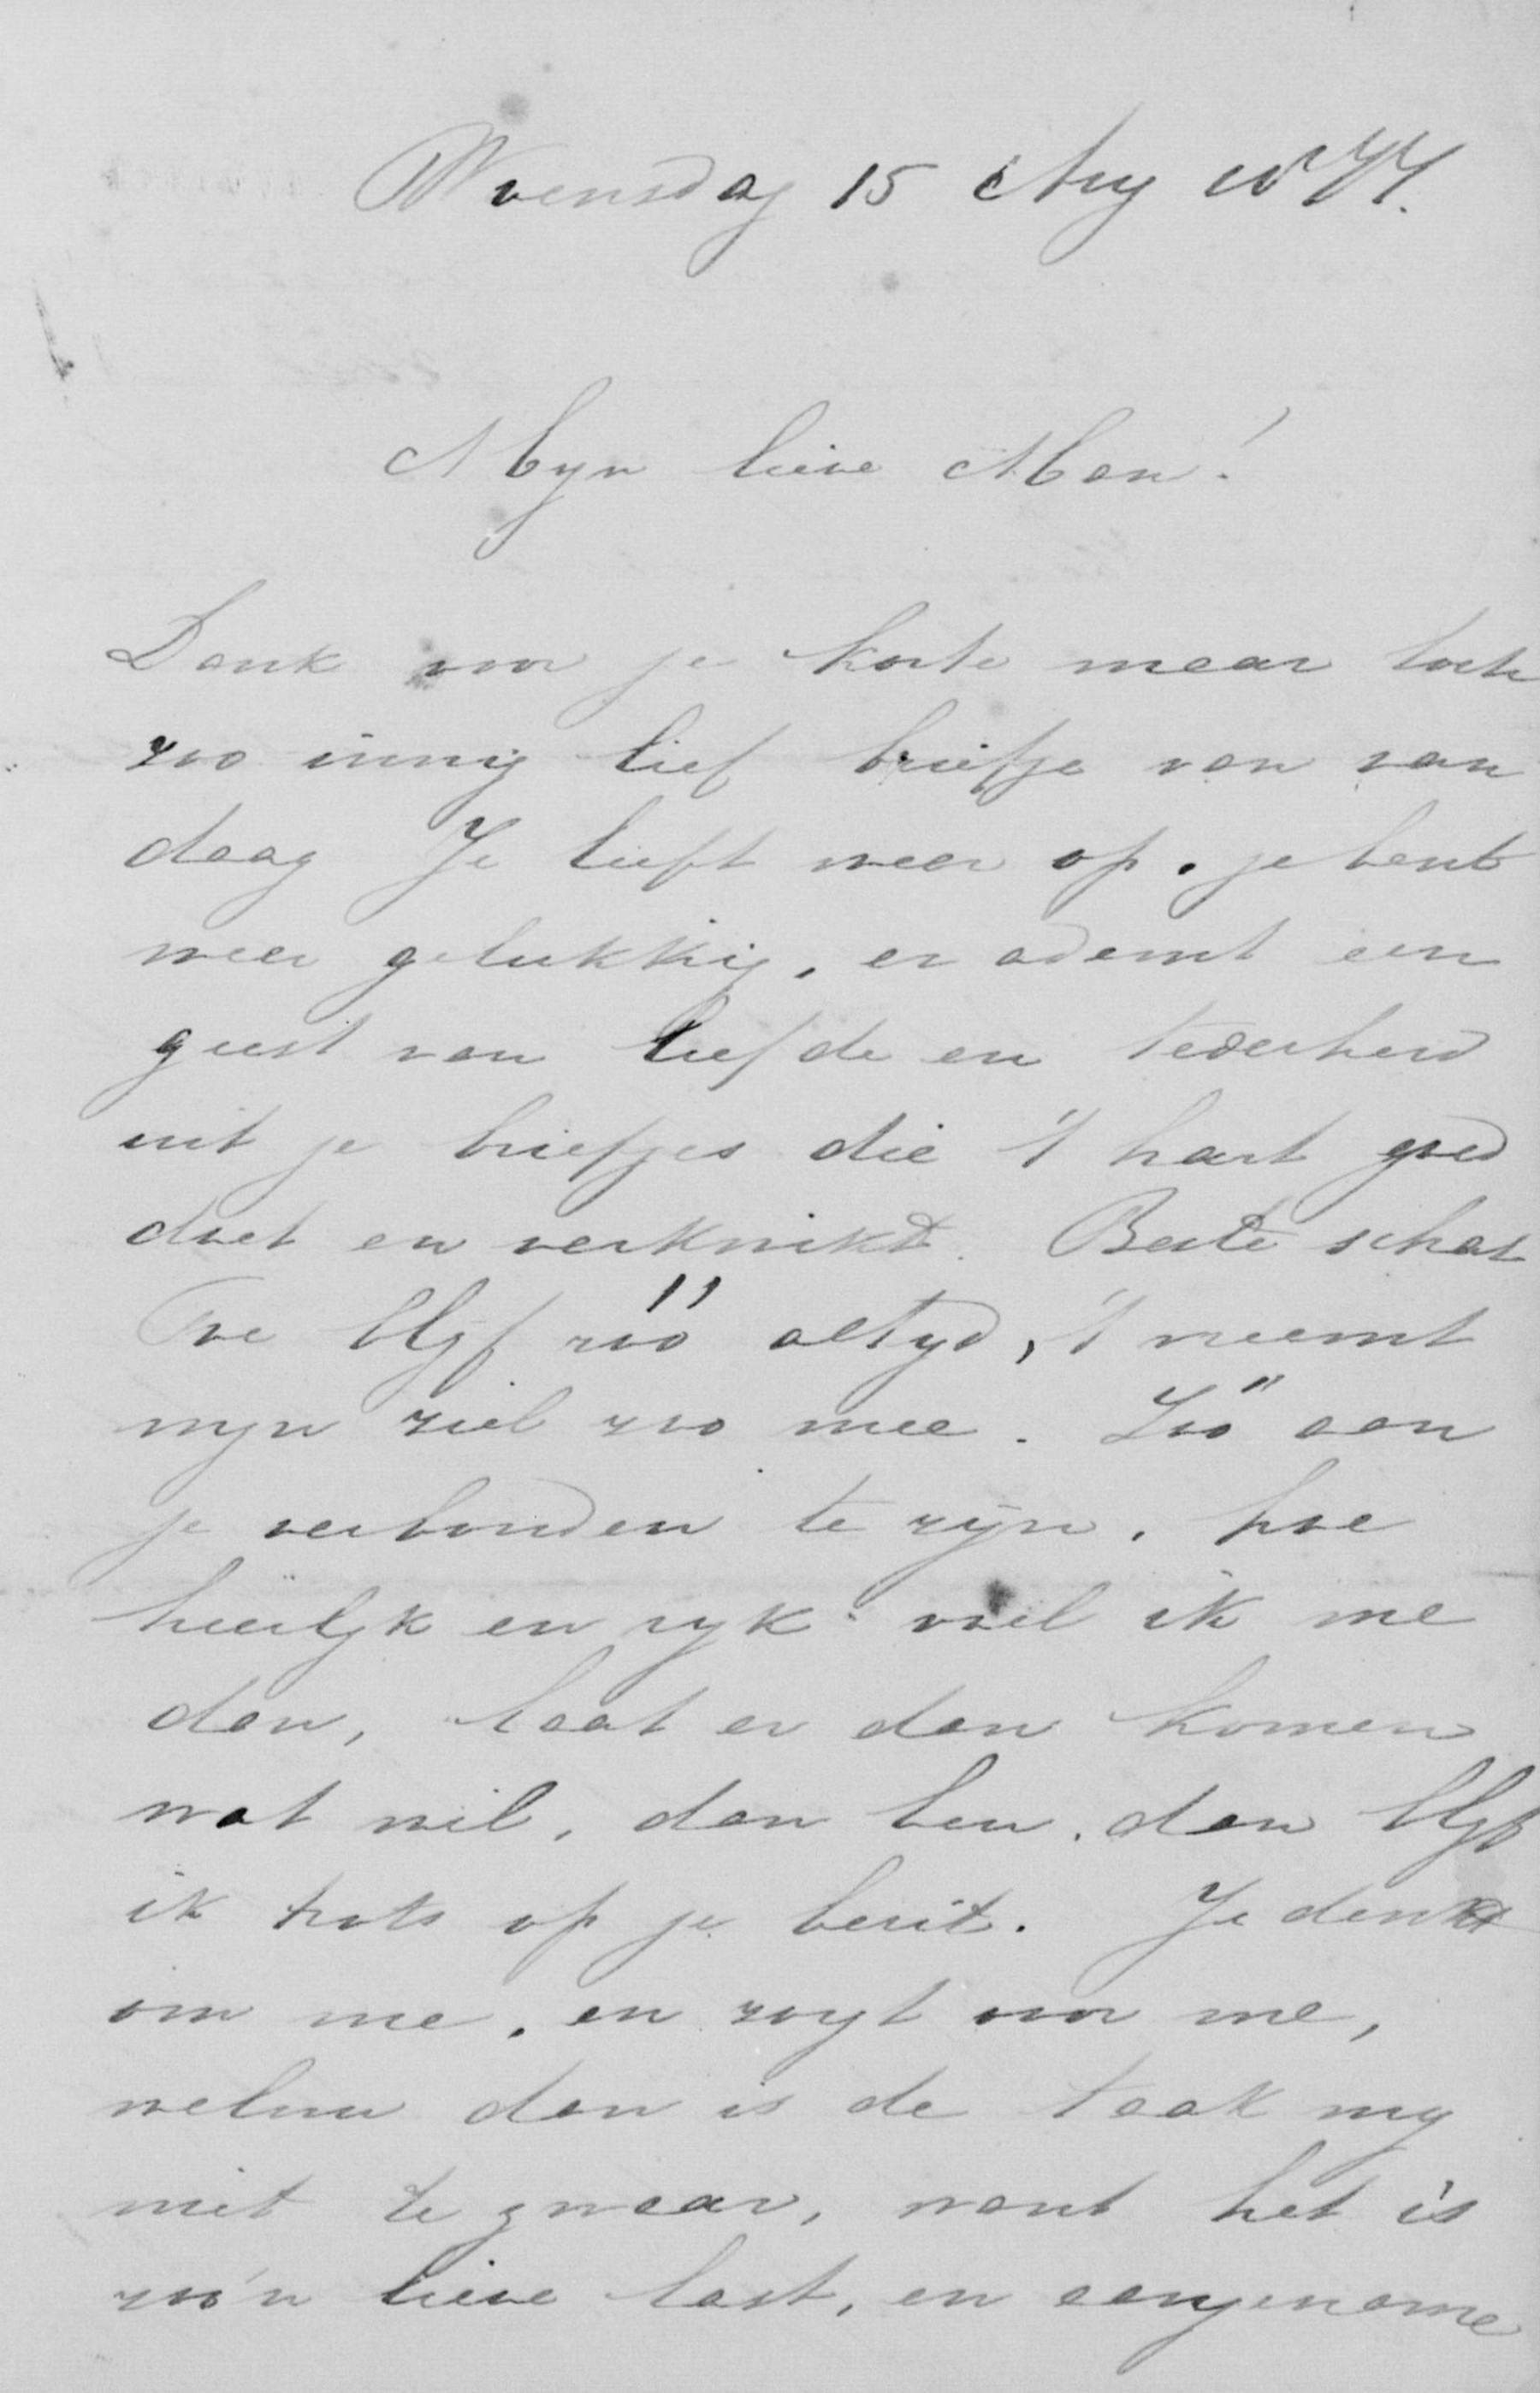 Woensdag 15 Aug 1877.
Myn lieve Man!
Dank voor je korte maar toch
zoo innig lief briefje van van
daag Je leeft weer op. je bent
weer gelukkig, er ademt een
geest van liefde en tederheid
uit je briefjes die 't hart goed
doet en verkwikt. Beste schat
Toe blyf zóó altyd, 't neemt
myn ziel zoo mee. Zóó aan
je verbonden te zyn, hoe
heerlyk en ryk voel ik me
dan, laat er dan komen
wat wil, dan ben, dan blyf
ik trots op je bezit. Je denkt
om me, en zorgt voor me,
welnu dan is de taak my
niet te zwaar, want het is
zoo'n lieve last, en aangename